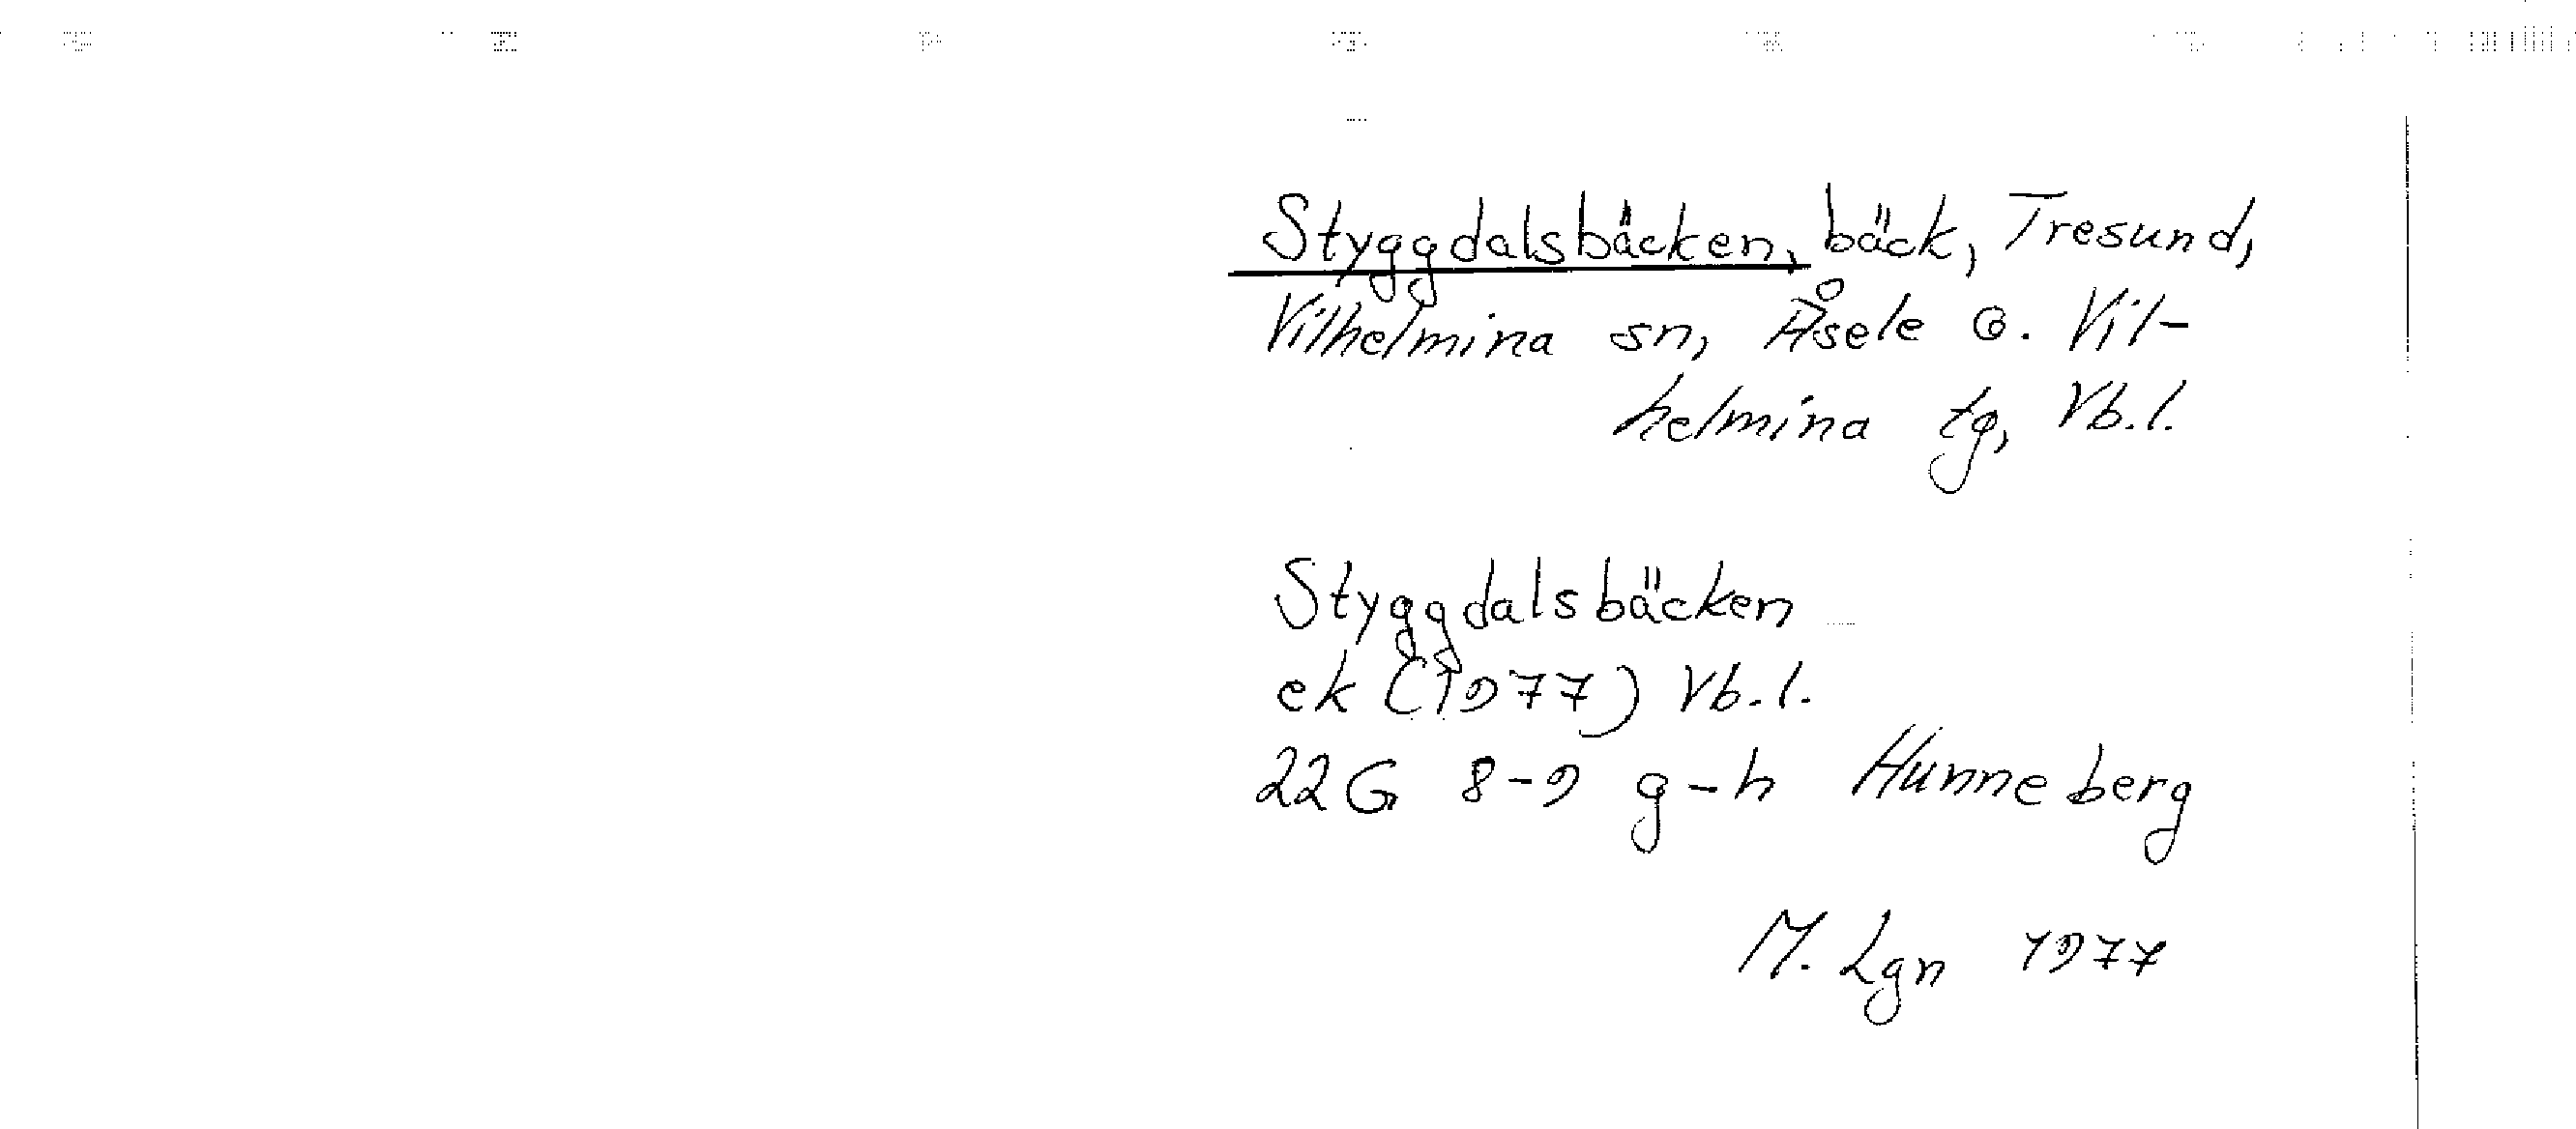 Styggdalsbäcken, bäck, Tresund,
Vilhelmina sn, Åsele o. Vil-
helmina tg, Vb.l.
Styggdalsbäcken
ek (1977) Vb.l.
22G 8-9 g-h Hunneberg
M. Lgn 1977